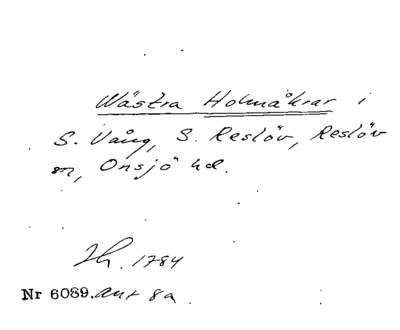 Västra Holmåkrar i
S. Vång, S. Reslöv, Reslöv
sn, Onsjö hd.
Th. 1784
Nr 6089. ant 8a